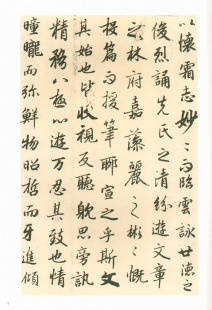 以懷霜志妙〻而臨雲詠世德之
俊烈誦先民之清芬遊文章
之林府嘉藻麗之彬〻慨
投篇而援筆聊宣之乎斯文
其始也皆收視反聽耽思旁訊
精騖八極心遊万仞其致也情
曈曨而弥鮮物昭晢而互進傾